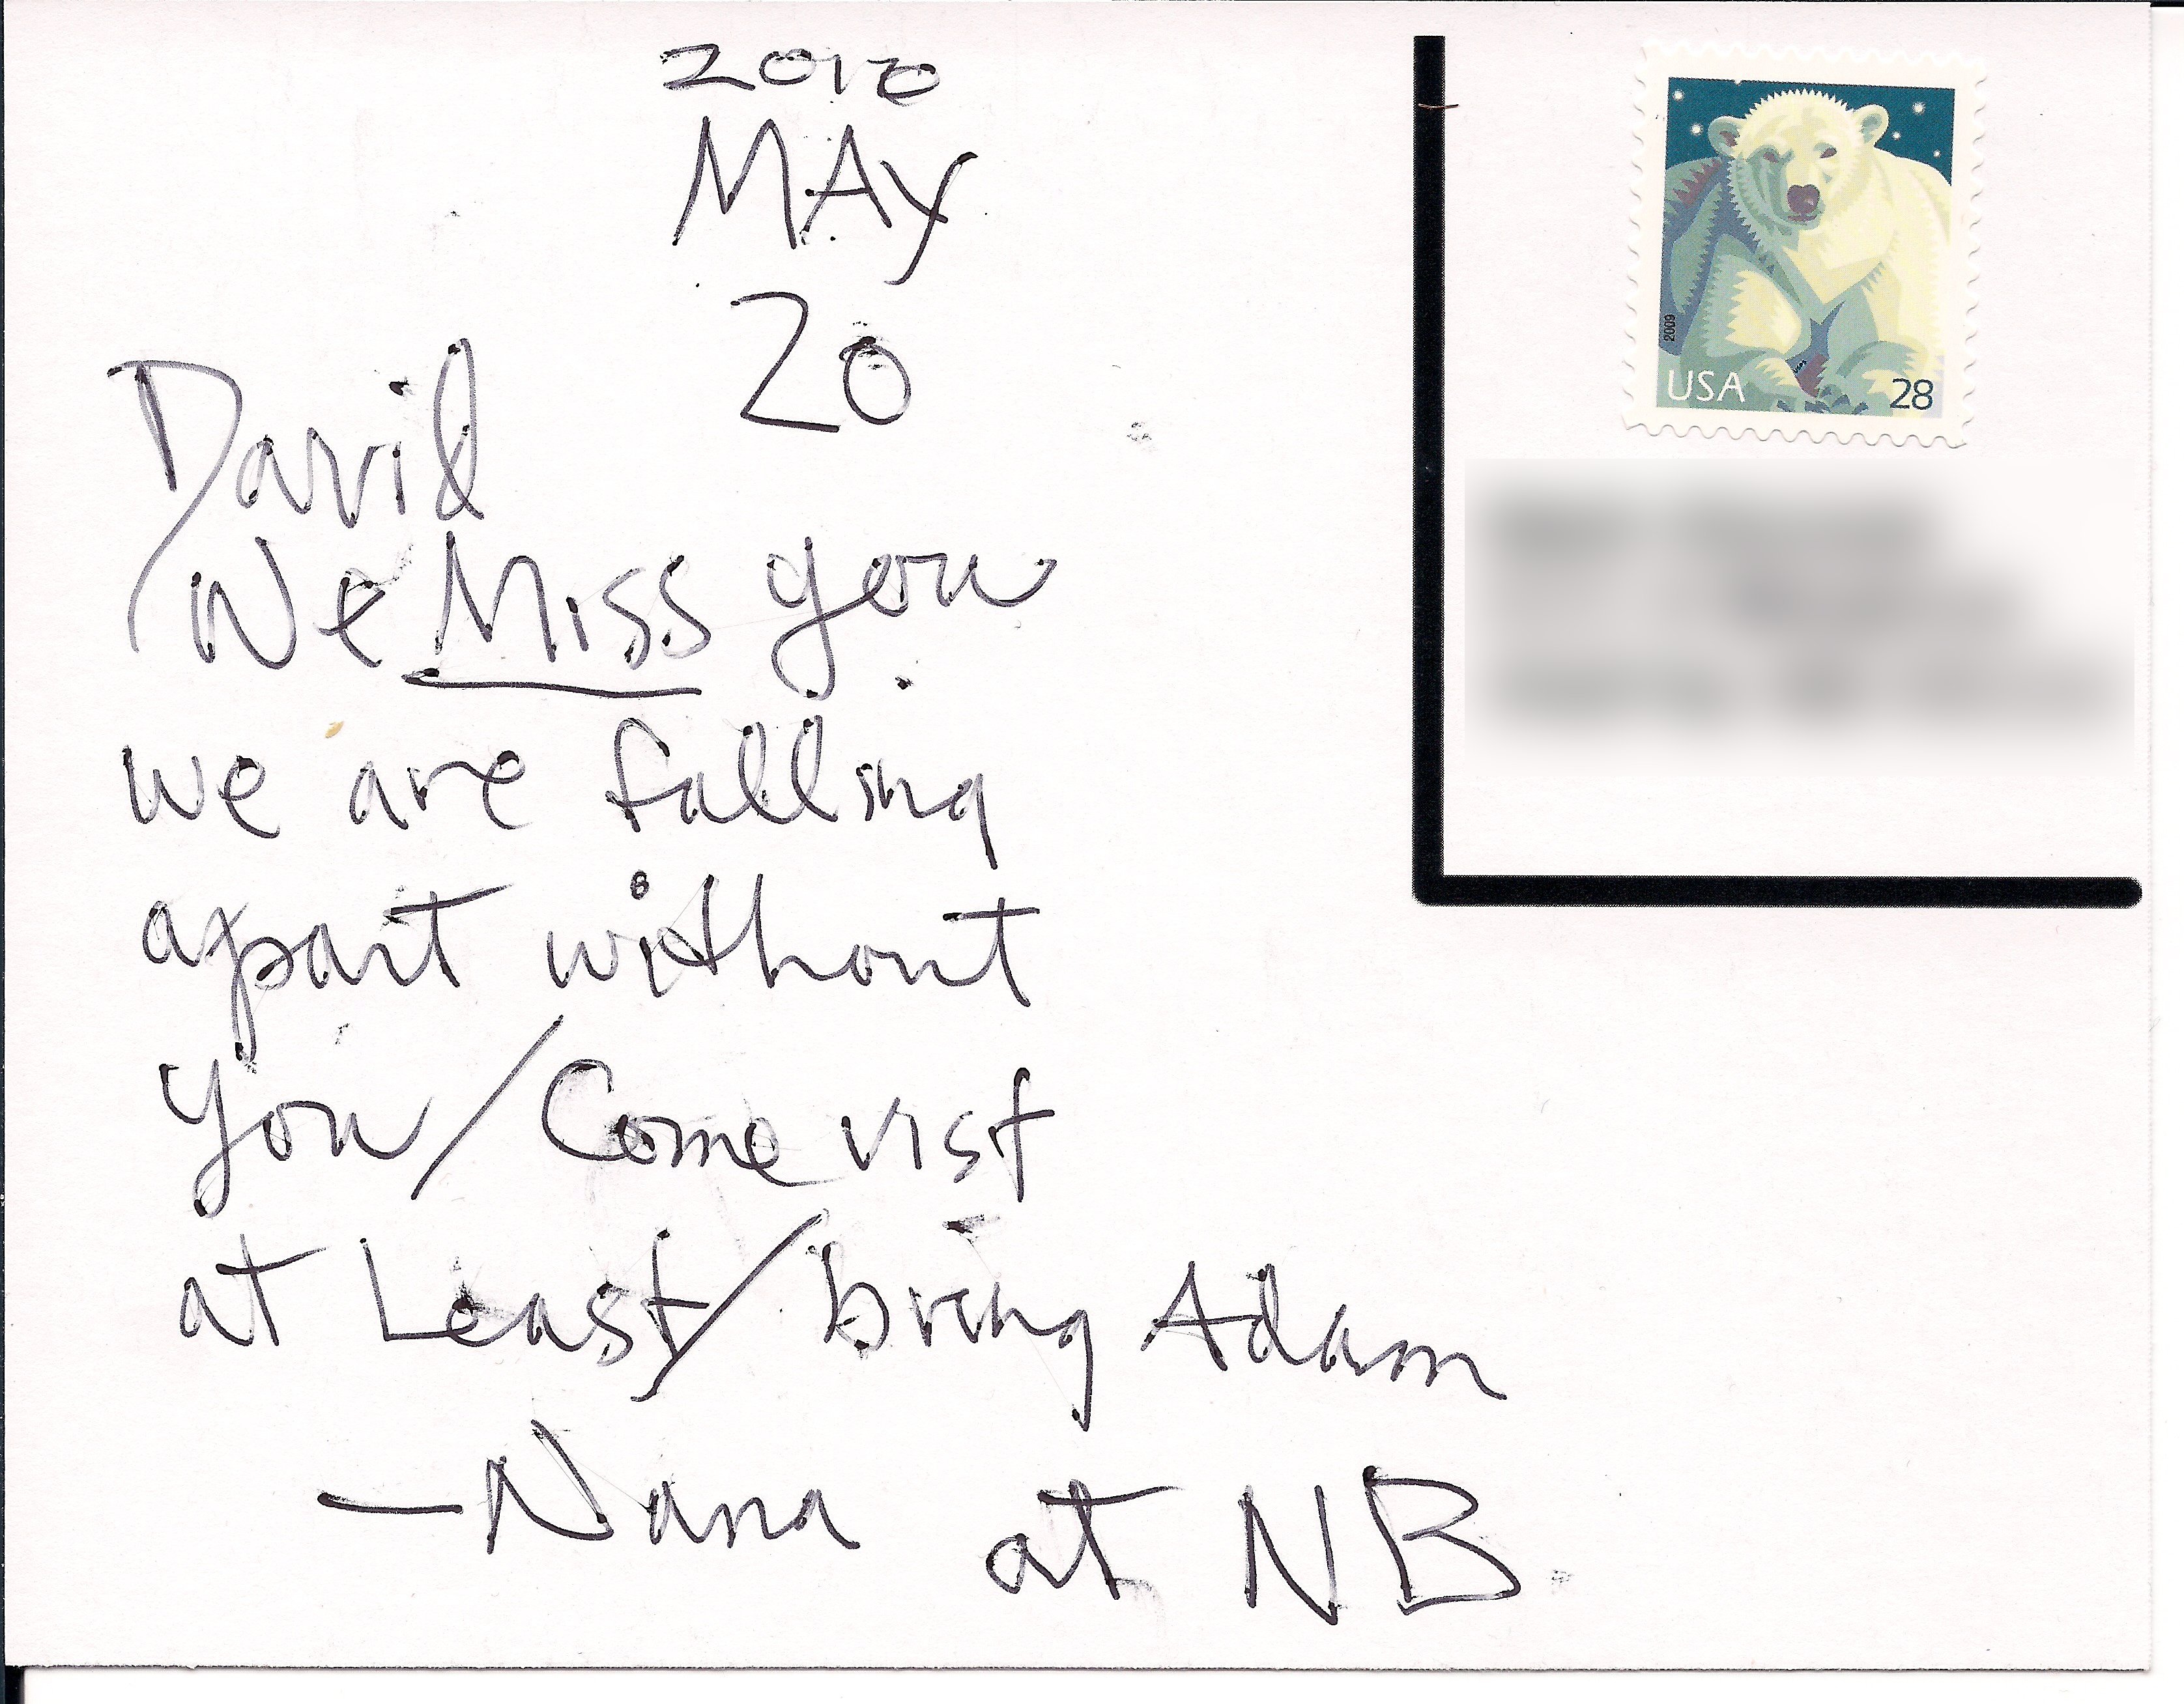 2010
MAY
20
David
We Miss you
we are falling
apart without
you/Come vist
at Least/bring Adam
—Nana at NB
2009
USA 28